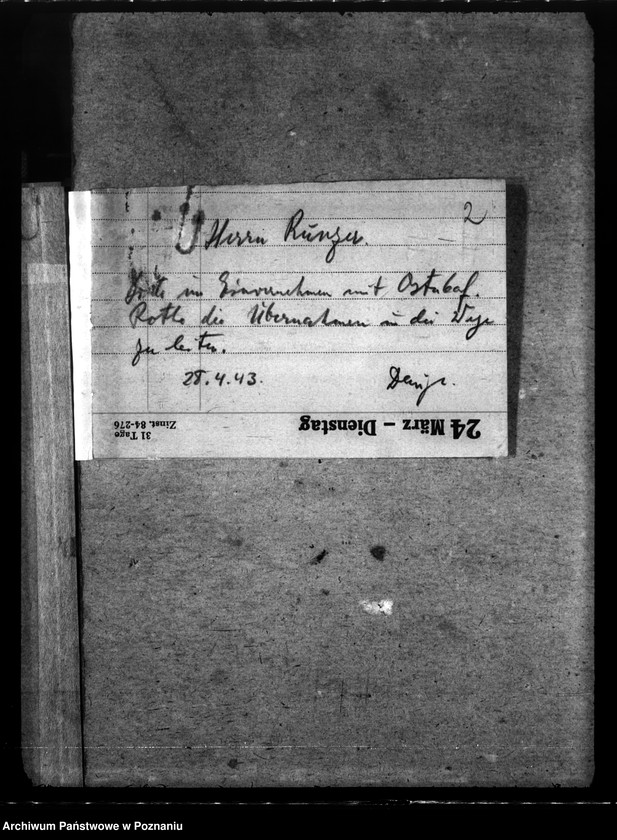 2
Herrn Runzer.
Bitte im Einvernehmen mit Ostubaf.
Roth die Übernahmen in die Wege
zu leiten.
28.4.43.
24 März – Dienstag
31 Tage
Zinst. 84-276
Archiwum Państwowe w Poznaniu